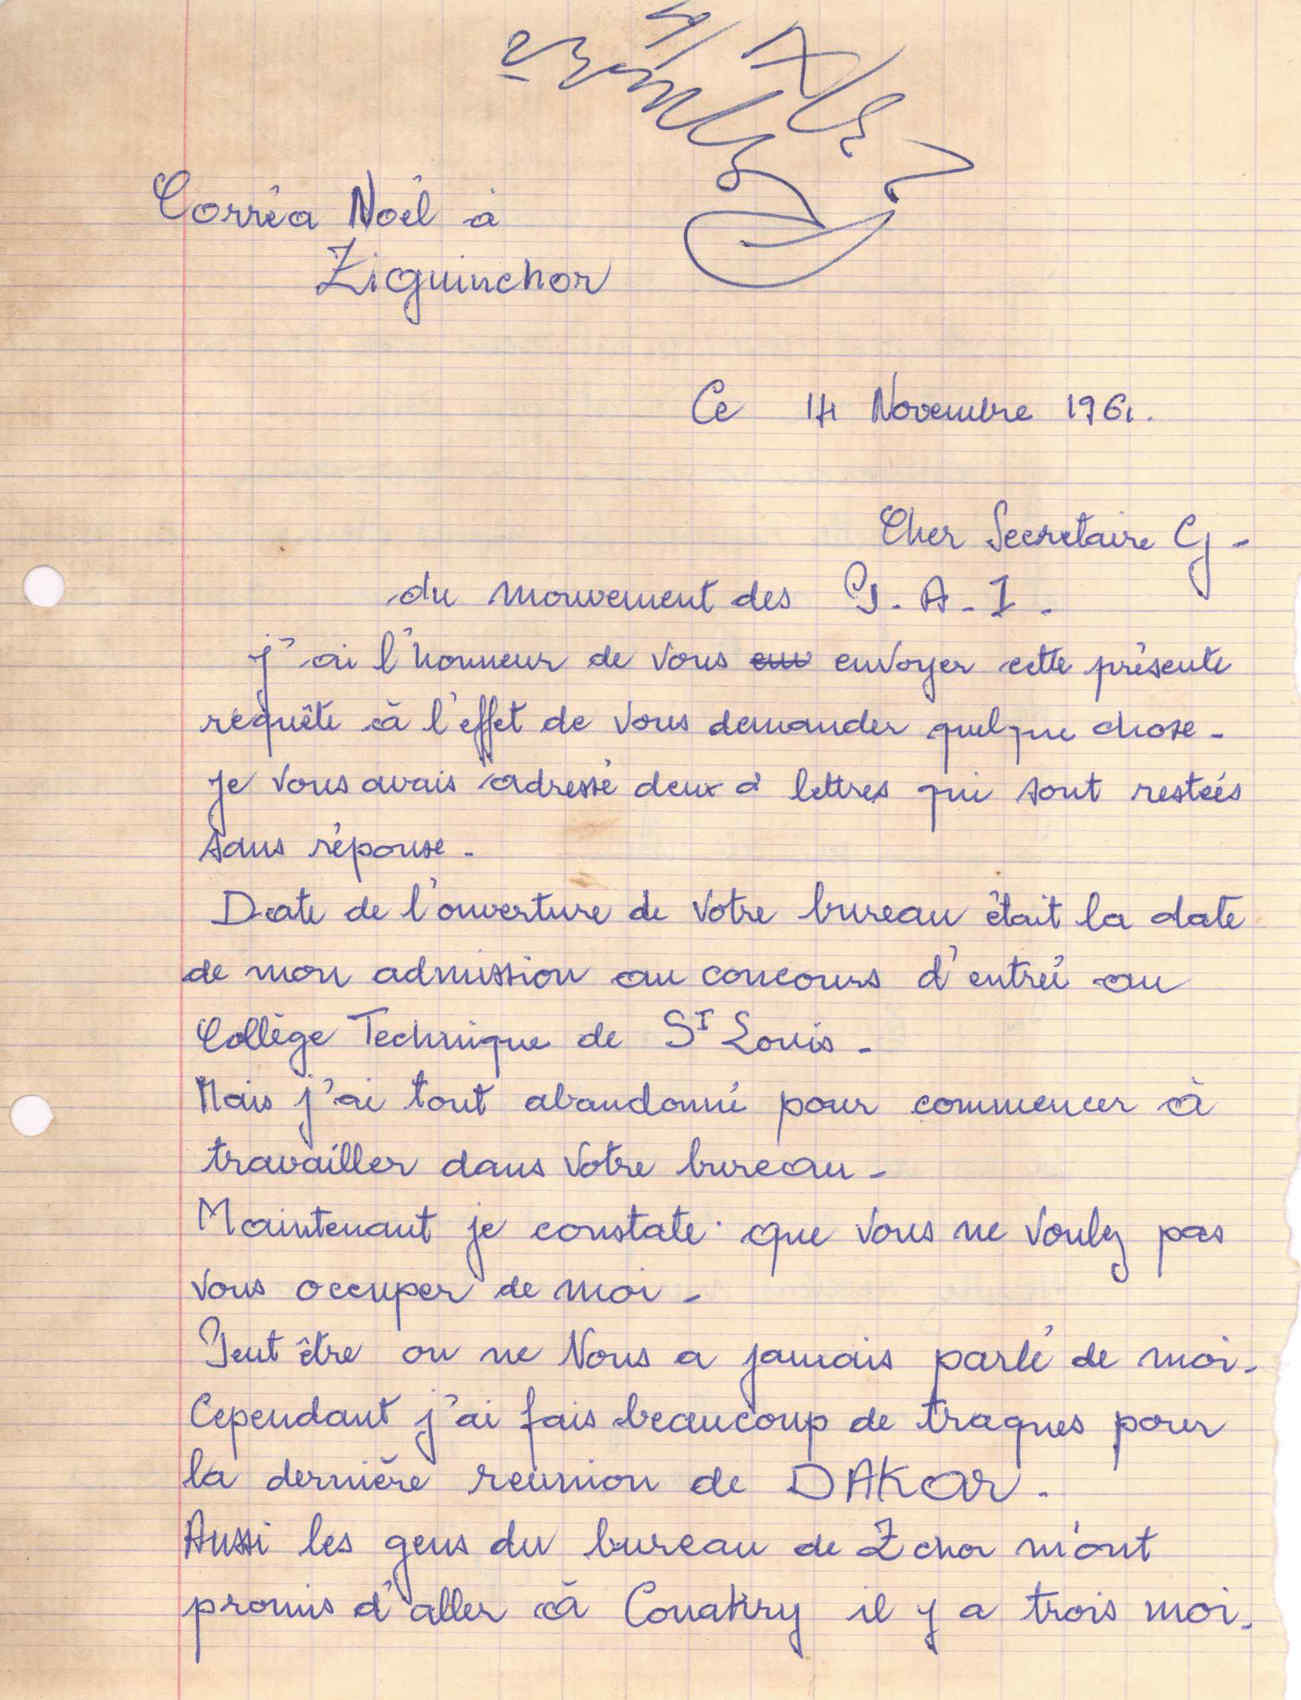 Corréa Noël à
Ziguinchor
Ce 14 Novembre 1961.
Cher Secretaire G -
du mouvement des P. A - I -
J'ai l'honneur de vous envoyer cette présente
requête à l'effet de vous demander quelque chose -
Je vous avais adressé deux lettres qui sont restées
sans réponse -
Date de l'ouverture de votre bureau était la date
de mon admission au concours d'entreé au
Collège Technique de St Louis -
Mais j'ai tout abandonné pour commencer à
travailler dans votre bureau -
Maintenant je constate que vous ne voulez pas
vous occuper de moi -
Peut être on ne Vous a jamais parlé de moi -
Cependant j'ai fais beaucoup de traques pour
la dernière reunion de DAKAR -
Aussi les gens du bureau de Zchor m'ont
promis d'aller à Conakry il y a trois moi -